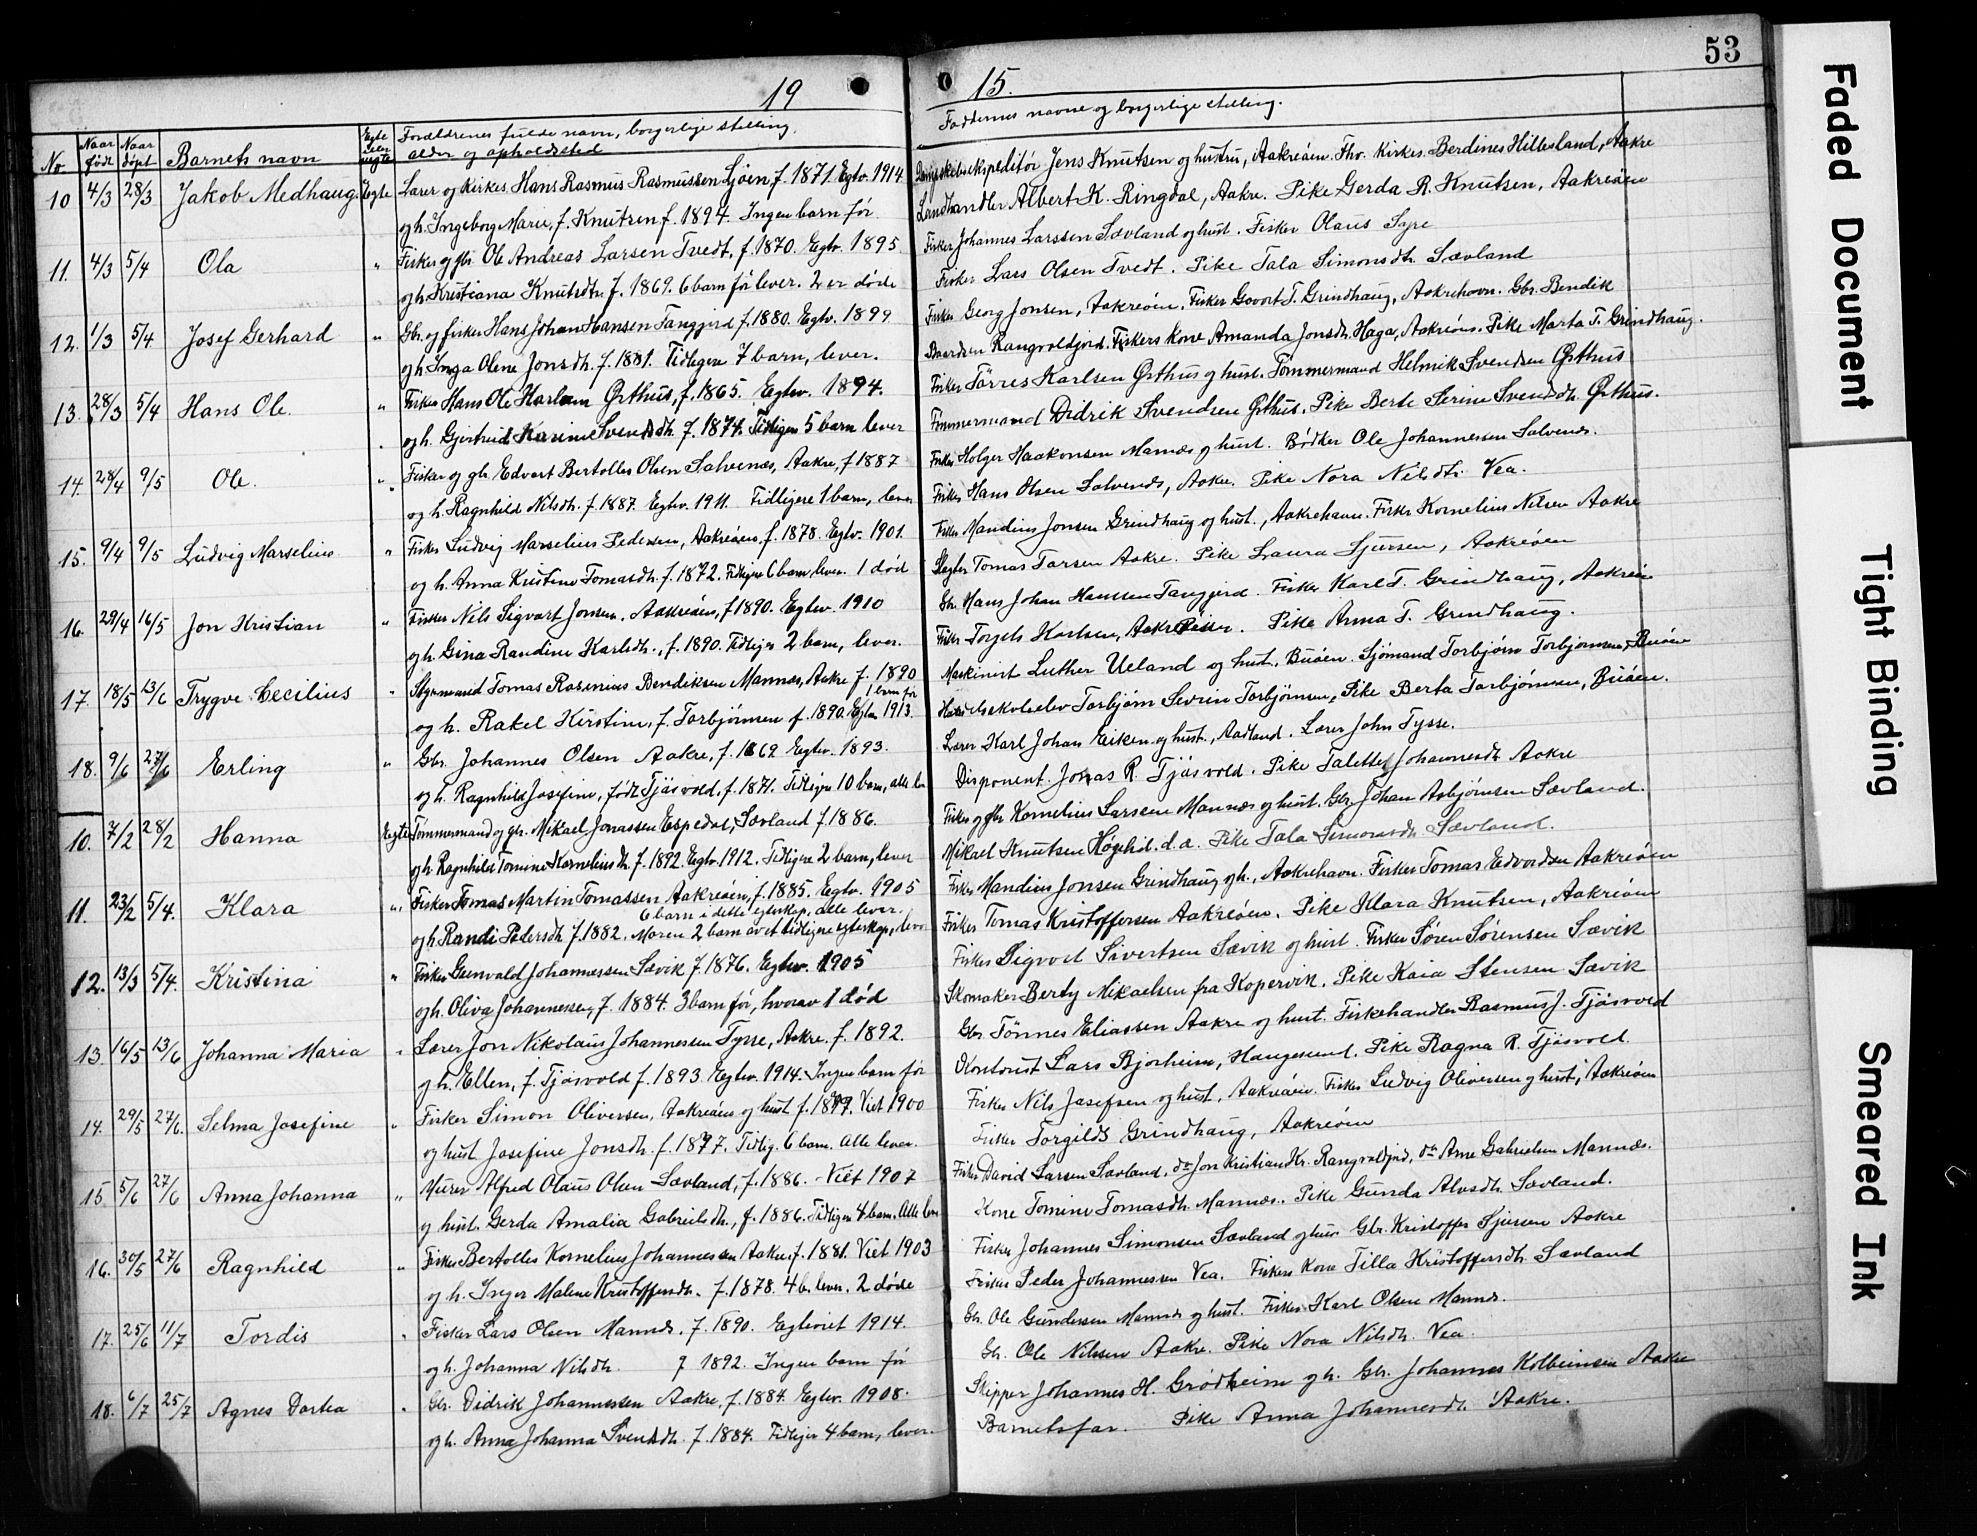 53
19 15.
No. Naar født Naar døpt Barnets navn Egte eller uegte Forældrenes fulde navn, borgerlige stilling, alder og opholdssted
Fadderenes navne og borgerlige stilling.
10 4/3 28/3 Jakob Medhaug. Egte Lærer og kirkes. Hans Rasmus Rasmussen Ljøen f. 1871 Egtv. 1914.
Dampskibsekspeditør Jens Knutsen og hustru, Aakreøen. Fhv. kirkes. Berdines Hillesland, Aakre
og h. Ingeborg Marie, f. Knutsen f. 1894. Ingen barn før
Landhandler Albert K. Ringdal, Aakre. Pike Gerda R. Knutsen, Aakreøen
11. 4/3 5/4 Ola " Fisker og gbr. Ole Andreas Larsen Tvedt, f. 1870. Egtv. 1895.
Fisker Johannes Larssen Sævland og hust. Fisker Olaus Sype
og h. Kristiana Knutsdtr. f. 1869. 6 barn før lever. 2 er døde
Fisker Lars Olsen Tvedt. Pike Tala Simonsdtr. Sævland
12. 1/3 5/4 Josef Gerhard " Gbr. og fisker Hans Johan Hansen Tangjerd f. 1880. Egtv. 1899
Fisker Georg Jonsen, Aakreøen. Fisker Govert T. Grindhaug, Aakrehavn. Gbr. Bendik
og h. Inga Olene Jonsdtr. f. 1881. Tidligere 7 barn, lever.
Baardsen Rangvaldjord. Fiskers kone Amanda Jonsdtr. Haga, Aakreøen. Pike Marta T. Grindhaug.
13. 28/3 5/4 Hans Ole. " Fisker Hans Ole Karlsen Ørthus, f. 1865. Egtv. 1894.
Fisker Tørres Karlsen Ørthus og hust. Tømmermand Helmik Svendsen Ørthus
og h. Gjertrud Karine Svendsdtr. f. 1874. Tidligere 5 barn lever
Tømmermand Didrik Svendsen Ørthus. Pike Berte Serine Svendsdtr. Ørthus.
14. 28/4 9/5 Ole. " Fisker og gbr. Edvart Bertolles Olsen Salvenæs, Aakre, f. 1887
Fisker Holger Haakonsen Mannæs og hust. Bødker Ole Johannessen Salvenes.
og h. Ragnhild Nilsdtr. f. 1887. Egtv. 1911. Tidligere 1 barn, lever
Fisker Hans Olsen Salvenes, Aakre. Pike Nora Nilsdtr. Vea.
15. 9/4 9/5 Ludvig Marselius " Fisker Ludvig Marselius Pedersen, Aakreøen, f. 1878. Egtv. 1901.
Fisker Mandius Jonsen Grindhaug og hust., Aakrehavn. Fisker Kornelius Nilsen Aakre
og h. Anna Kristine Tomasdtr. f. 1872. Tidligere 6 barn lever. 1 død
Slagter Tomas Tarsen Aakre. Pike Laura Sjursen, Aakreøen
16. 29/4 16/5 Jon Kristian " Fisker Nils Sigvart Jonsen, Aakreøen, f. 1890. Egtv. 1910
Gbr. Hans Johan Hanssen Tangjerd. Fisker Karl T. Grindhaug, Aakreøen
og h. Gina Randine Karlsdtr., f. 1890. Tidligere 2 barn, lever.
Fisker Torgels Karlsen, Aakreøen. Pike Anna T. Grindhaug.
17. 18/5 13/6 Trygve Cecilius " Styrmand Tomas Rasenius Bendiksen Mannæs, Aakre f. 1890
Maskinist Luther Ueland og hust., Buøen. Sjømand Torbjørn Torbjørnsen, Buøen
1 barn før
og h. Rakel Kirstine, f. Torbjørnsen f. 1890. Egtv. 1913.
Handelsskoleelev Torbjørn Severin Torbjørnsen, Pike Berta Torbjørnsen, Buøen.
18. 9/6 27/6 Erling " Gbr. Johannes Olsen Aakre, f. 1869 Egtv. 1893.
Lærer Karl Johan Eiken og hust., Aadland. Lærer John Tysse.
og h. Ragnhild Josefine, født Tjøsvold, f. 1871. Tidligere 10 barn, alle lev
Disponent Jonas R. Tjøsvold. Pike Talette Johannesdtr. Aakre
10. 7/2 28/2 Hanna Egte Tømmermand og gbr. Mikael Jonassen Espedal, Sævland f. 1886.
Fisker og gbr. Kornelius Larssen Mannæs og hust. Gbr. Johan Asbjørnsen Sævland.
og h. Ragnhild Tomine Korneliusdtr. f. 1892. Egtv. 1912. Tidligere 2 barn, lever
Mikael Knutsen Høgelid. d.a. Pike Tala Simonsdtr. Sævland.
11. 23/2 5/4. Klara " Fisker Tomas Martin Tomassen Aakreøen, f. 1885. Egtv. 1905
Fisker Mandius Jonsen Grindhaug og h., Aakrehavn. Fisker Tomas Edvardsen Aakreøen
6 barn i dette egteskap, alle lever.
og h. Randi Pedersdtr. f. 1882. Moren 2 barn av et tidligere egteskap, lever
Fisker Tomas Kristoffersen Aakreøen. Pike Klara Knutsen, Aakreøen
12. 13/3 5/4. Kristina " Fisker Gunvald Johannessen Sævik f. 1876. Egtv. 1905
Fisker Sigvart Sivertsen Sævik og hust. Fisker Søren Sørensen Sævik
og h. Oliva Johannessen, f. 1884. 3 barn før, hvorav 1 død
Skomaker Berty Mikaelsen fra Kopervik. Pike Kaia Stensen Sævik
13. 16/5 13/6 Johanna Maria " Lærer Jon Nikolaus Johannessen Tysse, Aakre. f. 1892.
Gbr. Tønnes Eliassen Aakre og hust. Fiskehandler Rasmus J. Tjøsvold
og h. Ellen, f. Tjøsvold f. 1893. Egtv. 1914. Ingen barn før
Kontorist Lars Bjorheim, Haugesund. Pike Ragna R. Tjøsvold.
14. 29/5 27/6. Selma Josefine " Fisker Simon Oliversen, Aakreøen og hust f. 1879. Viet 1900
Fisker Nils Josefsen og hust, Aakreøen. Fisker Ludvig Oliversen og hust, Aakreøen
og hust Josefine Jonsdtr. f. 1877. Tidlig. 6 barn. Alle lever.
Fisker Torgilds Grindhaug, Aakreøen
15. 5/6 27/6 Anna Johanna " Murer Alfred Olaus Olsen Sævland, f. 1886. Viet 1907
Fisker David Larsen Sævland. do Jon Kristian Kr. Rangvaldjord, do Arne Gabrielsen Mannæs.
og hust. Gerda Amalia Gabrielsdtr., f. 1886. Tidligere 4 barn. Alle lev
Kone Tomine Tomasdtr. Mannæs. Pike Gunda Alvsdtr. Sævland.
16. 30/5 27/6 Ragnhild " Fisker Bertolles Kornelius Johannessen Aakre. f. 1881. Viet 1903
Fisker Johannes Simonsen Sævland og hus. Gbr. Kristoffer Sjursen Aakre
og h. Inger Malene Kristoffersdtr. f. 1878. 4 b. lever. 2 døde
Fisker Peder Johannessen Vea. Fiskers kone Tilla Kristoffersdtr. Sævland
17. 25/6 11/7 Tordis " Fisker Lars Olsen Mannes. f. 1890. Egteviet 1914.
Gbr. Ole Gundersen Mannes og hust. Fisker Karl Olsen Mannes.
og h. Johanna Nilsdtr. f 1892. Ingen barn før
Gbr. Ole Nilsen Aakre. Pike Nora Nilsdtr. Vea.
18. 6/7 25/7 Agnes Dortea " Gbr. Didrik Johannessen Aakre, f. 1884. Egtv. 1908.
Skipper Johannes H. Grødheim og h. Gbr. Johannes Kolbeinsen Aakre
og h. Anna Johanna Svendsdtr. f. 1884. Tidligere 4 barn, lever.
Barnets far. Pike Anna Johannesdtr. Aakre.
Faded Document
Tight Binding
Smeared Ink